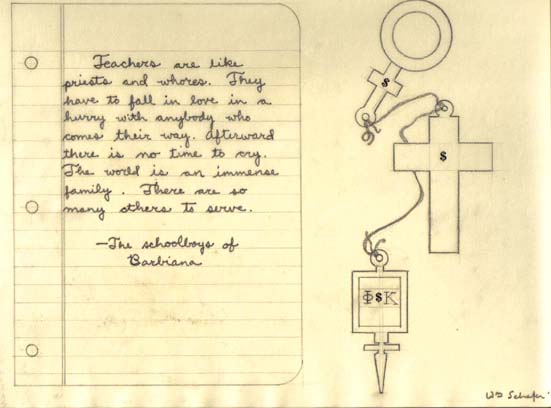 Teachers are like
priests and whores. They
have to fall in love in a
hurry with anybody who
comes their way. Afterward
there is no time to cry.
The world is an immense
family. There are so
many others to serve.
—The schoolboys of
Barbiana
$
$
Φ$K
WD Schafer